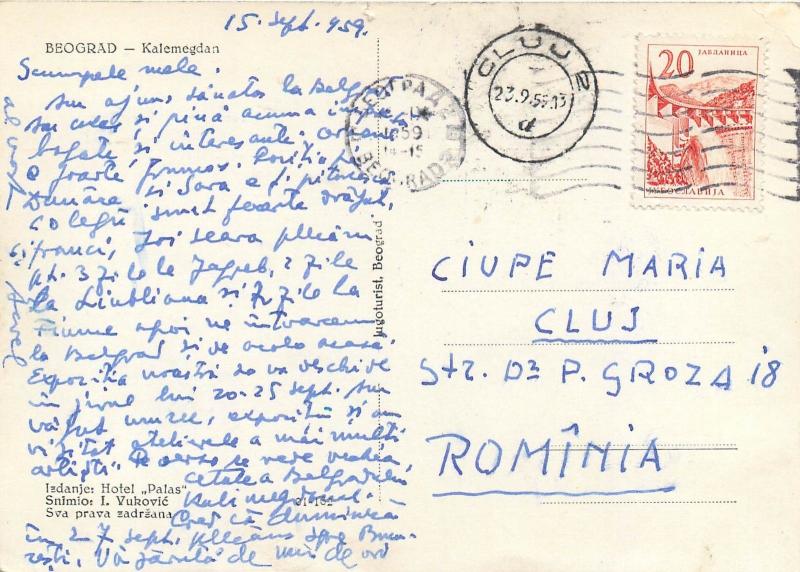 15. Sept. 959.
BEOGRAD — Kalemegdan
Scumpele mele.
am ajuns sănătos la Belgrad
cu ceas și pînă acuma impresii
bogate și interesante. orașul
e foarte frumos. Poziția pe
Dunăre și Sava e pitorească
colegii sunt foarte drăguți,
și franci, Joi seara plecăm
pt. 3 zile la Zagreb, 2 zile
la Liubliana și 2 zile la
Fiume apoi ne întoarcem
la Belgrad și de acolo acasă
Expoziția noastră se va deschide
în jurul lui 20-25 sept. am
văzut muzee, expoziții și am
vizitat atelierele a mai mulți
artiști. Pe verso se vede vechia
cetate a Belgradului
Kalimegdanul.
Cred că duminecă
în 27 sept. plecăm spre Bucu-
rești. Vă sărută de mii de ori
al vost
Aurel
Izdanje: Hotel „Palas"
Snimio: I. Vuković
Sva prava zadržana
Jugoturist, Beograd
БЕОГРАД
1959
14-15
BEOGRAD 2
CLUJ 2
23.9.59.13
d
20
ЈАБЛАНИЦА
ЈУГОСЛАВИЈА
CIUPE MARIA
CLUJ
Str. Dr P. GROZA 18
ROMÎNIA